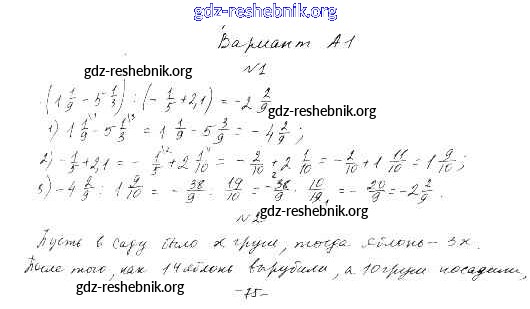 gdz-reshebnik.org
Вариант А1
gdz-reshebnik.org
№1
(1 1/9 - 5 1/3) : (- 1/5 + 2,1) = -2 2/9
gdz-reshebnik.org
1) 1 1/9 \1 - 5 1/3 \3 = 1 1/9 - 5 3/9 = - 4 2/9 ;
2) - 1/5 + 2,1 = - 1/5 \2 + 2 1/10 = - 2/10 + 2 1/10 = - 2/10 + 1 11/10 = 1 9/10 ;
3) - 4 2/9 : 1 9/10 = - 38/9 : 19/10 = - 38/9 · 10/19 = - 20/9 = -2 2/9 .
№2
gdz-reshebnik.org
Пусть в саду было x груш, тогда яблонь - 3x.
После того, как 14 яблонь вырубили, а 10 груш посадили,
gdz-reshebnik.org
-75-